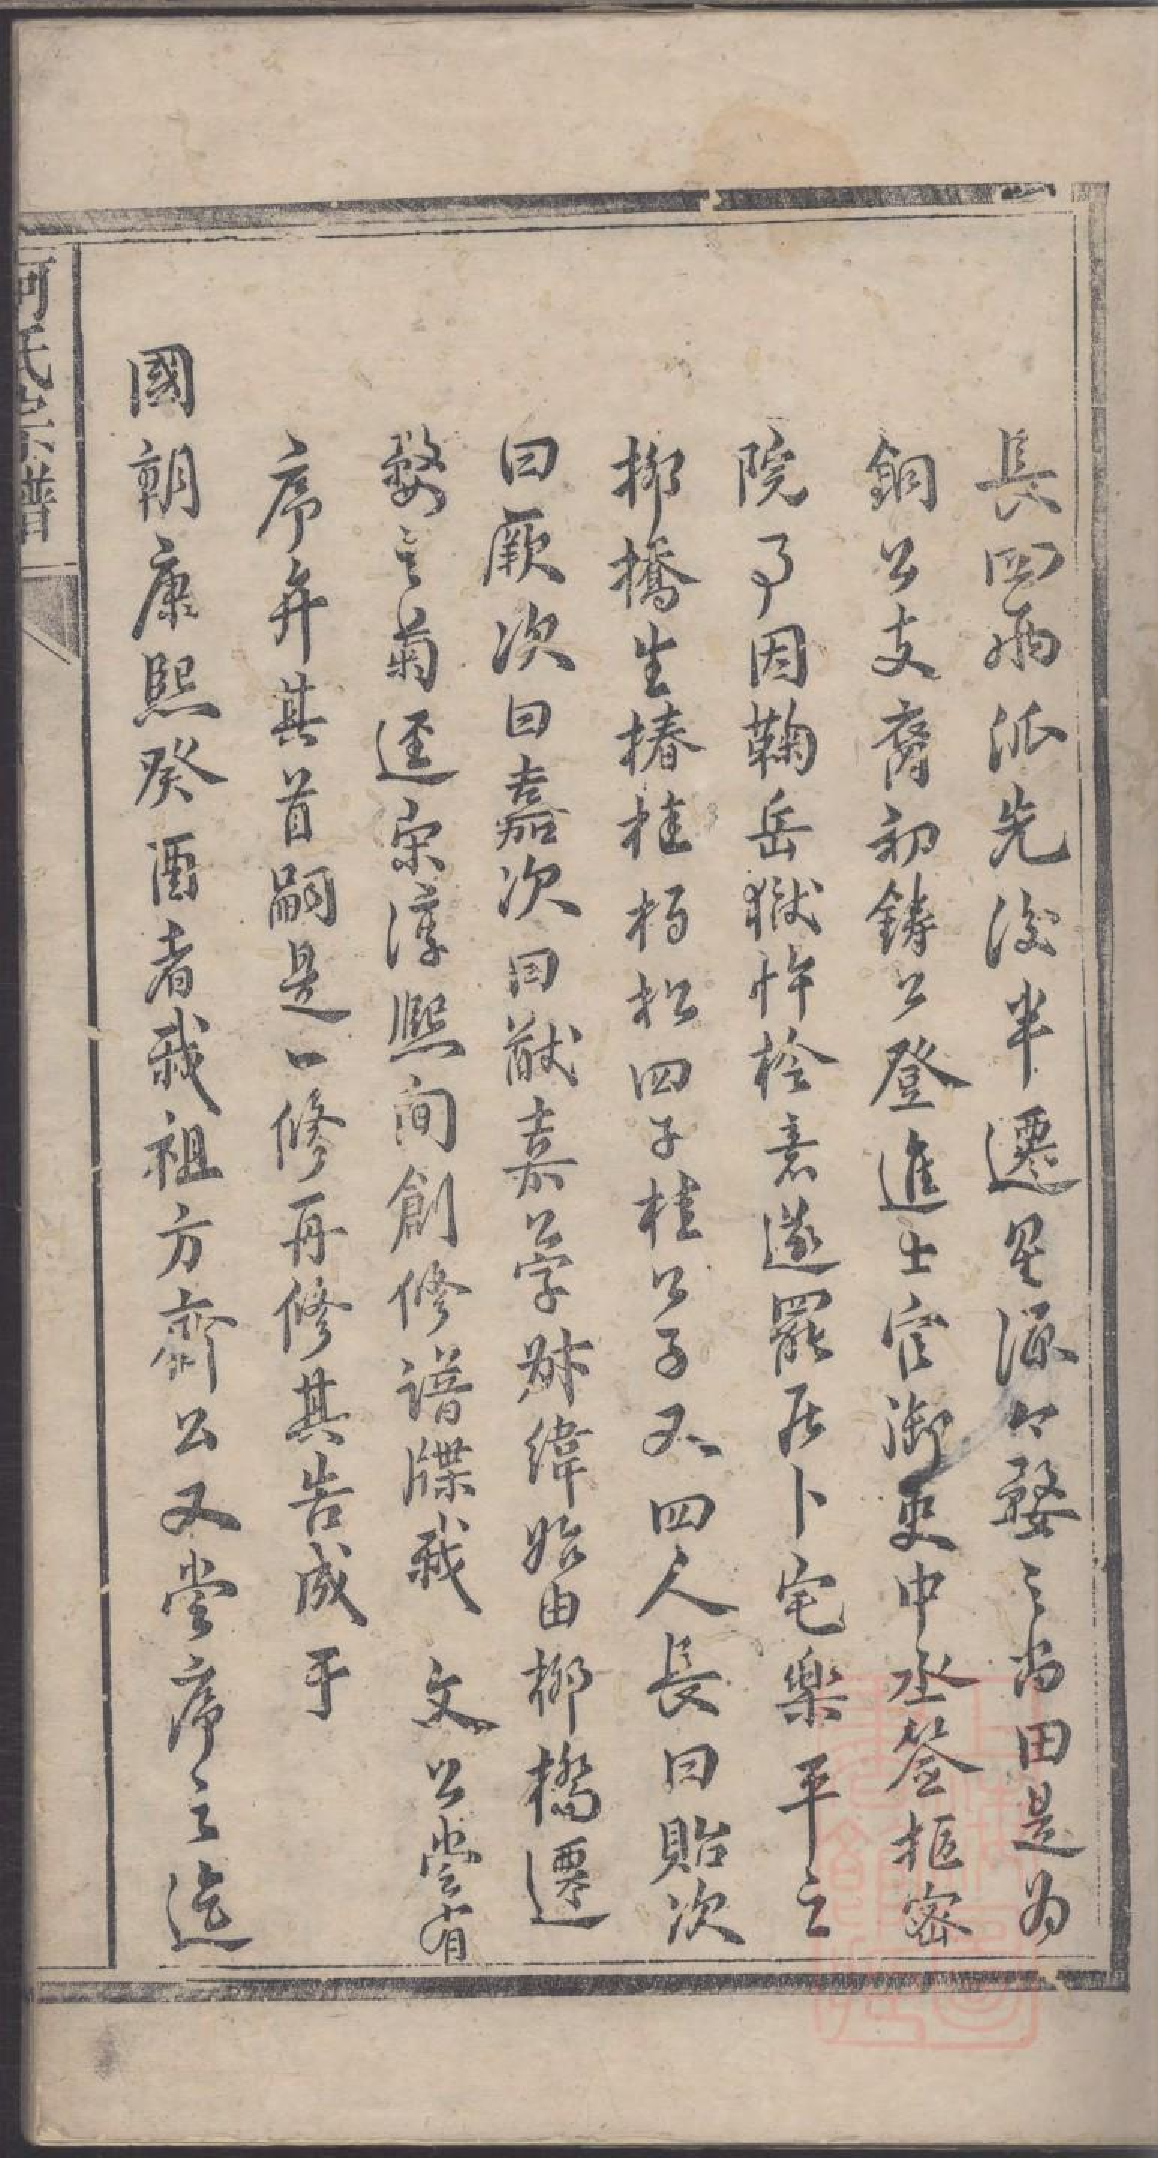 長四兩派先後半遷星源今婺之尚田是為
銅公支裔初鑄公登進士官御史中丞簽樞密
院事因鞠岳獄忤桧意遂罷居卜宅樂平之
柳橋生椿桂栢松四子桂公子又四人長曰貽次
曰厥次曰嘉次曰猷嘉公字叔緯始由柳橋遷
婺之菊逕宋淳熙间創修譜牒我 文公嘗有
序弁其首嗣是一修再修其告成于
國朝康熙癸酉者我祖方齋公又嘗序之迄
何氏宗譜